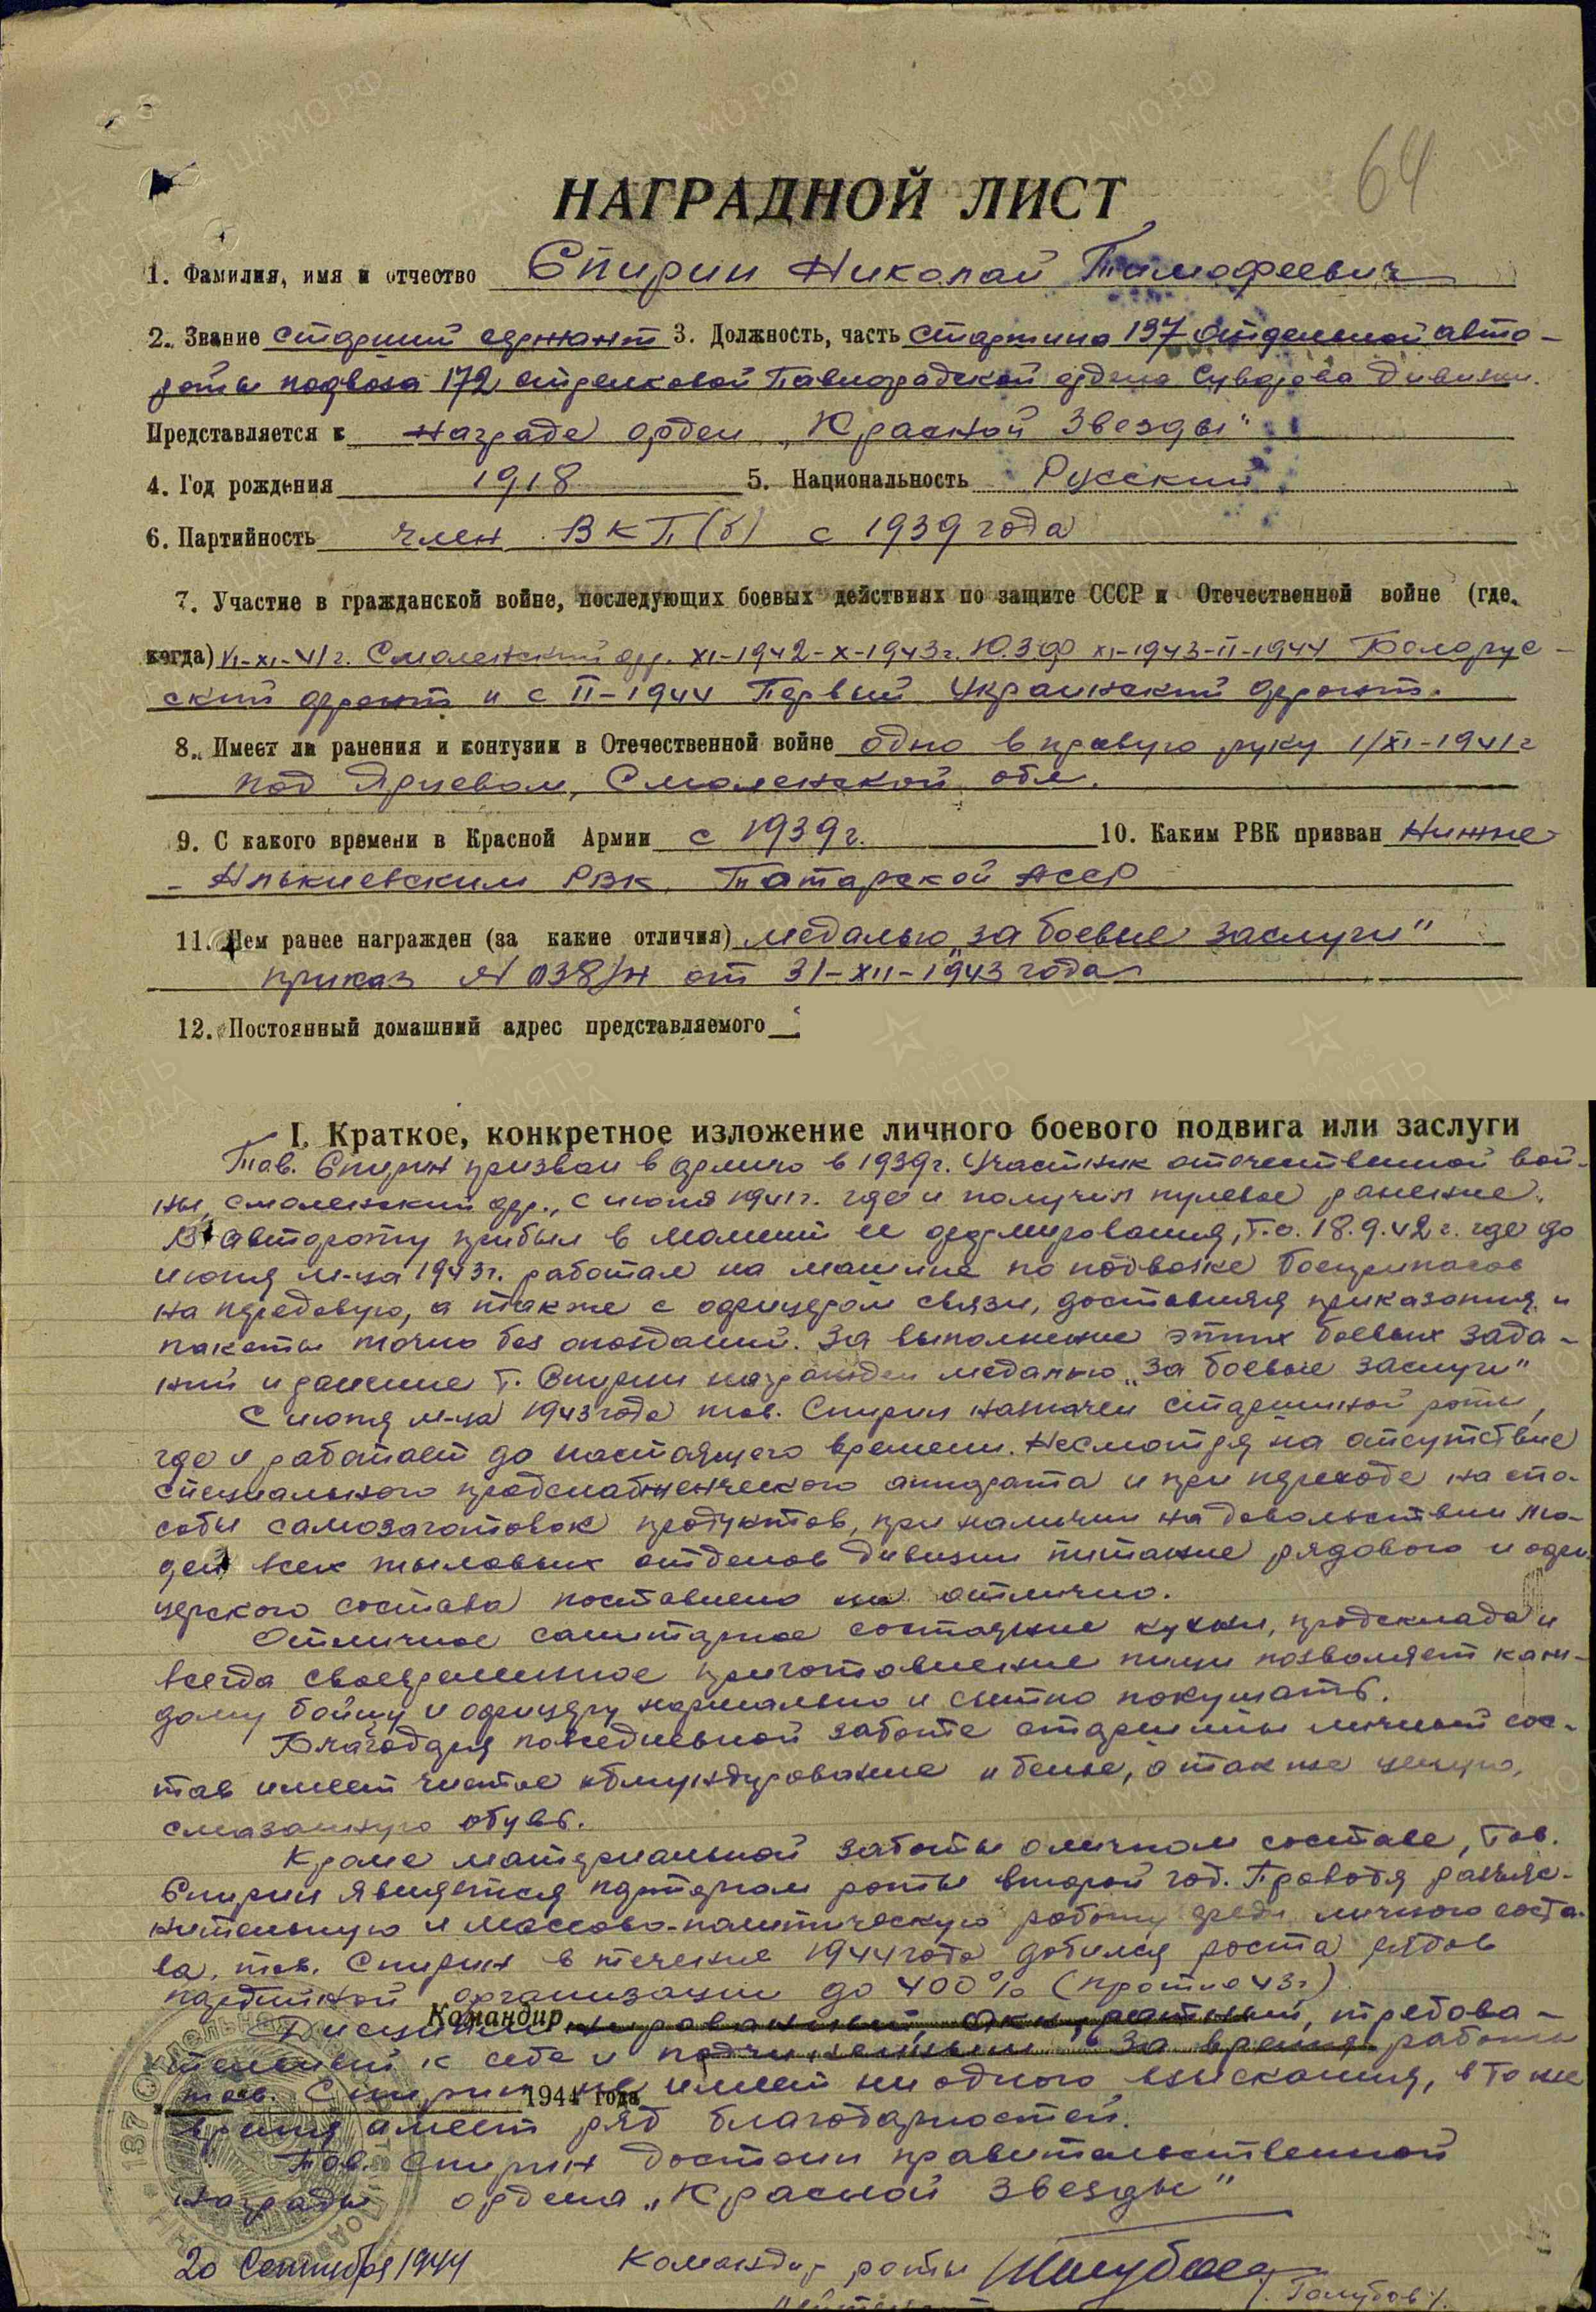 64
НАГРАДНОЙ ЛИСТ
1. Фамилия, имя и отчество Спирин Николай Тимофеевич
2. Звание старший сержант 3. Должность, часть старшина 137 отдельной авто-
роты подвоза 172 стрелковой Павлоградской ордена Суворова Дивизии.
Представляется к награде орден „Красной Звезды"
4. Год рождения 1918 5. Национальность Русский
6. Партийность член ВКП(б) с 1939 года
7. Участие в гражданской войне, последующих боевых действиях по защите СССР и Отечественной войне (где,
когда) VI-XI-41г. Смоленский фр. XI-1942-X-1943г. Ю.З.Ф XI-1943-II-1944 Белорус-
ский фронт и с II-1944 Первый Украинский фронт.
8. Имеет ли ранения и контузии в Отечественной войне одно в правую руку 1/XI-1941г
под Ярцевом, Смоленской обл.
9. С какого времени в Красной Армии с 1939г. 10. Каким РВК призван Нижне
- Алькиевским РВК, Татарской АССР
11. Чем ранее награжден (за какие отличия) медалью „за боевые заслуги"
приказ № 038/н от 31-XII-1943 года
12. Постоянный домашний адрес представляемого
I. Краткое, конкретное изложение личного боевого подвига или заслуги
Тов. Спирин призван в армию в 1939г. Участник отечественной вой-
ны, смоленский фр., с июня 1941г. где и получил пулевое ранение.
В автороту прибыл в момент ее формирования, т.е. 18.9.42г. где до
июня м-ца 1943г. работал на машине по подвозке боеприпасов
на передовую, а также с офицером связи, доставляя приказания и
пакеты точно без опозданий. За выполнение этих боевых зада-
ний и ранение т. Спирин награжден медалью „за боевые заслуги"
С июня м-ца 1943 года тов. Спирин назначен старшиной роты,
где и работает до настоящего времени. Несмотря на отсутствие
специального продснабженческого аппарата и при переходе на спо-
собы самозаготовок продуктов, при наличии на довольствии лю-
дей всех тыловых отделов дивизии питание рядового и офи
церского состава поставлено на отлично.
Отличное санитарное состояние кухни, продсклада и
всегда своевременное приготовление пищи позволяет каж-
дому бойцу и офицеру нормально и сытно покушать.
Благодаря повседневной заботе старшины личный сос-
тав имеет чистое обмундирование и белье, а также целую,
смазанную обувь.
Кроме материальной заботы о личном составе, тов.
Спирин является парторгом роты второй год. Проводя разъяс-
нительную и массово-политическую работу среди личного соста-
ва, тов. Спирин в течение 1944 года добился роста рядов
партийной организации до 400% (против 43г)
Командир
Дисциплинированный, аккуратный, требова-
тельный к себе и подчиненным. За время работы
тов. Спирин не имеет ни одного взыскания, в то же
1944 года
время имеет ряд благодарностей.
Тов. Спирин достоин правительственной
награды ордена „Красной Звезды"
20 Сентября 1944 Командир роты
/Голубов/.